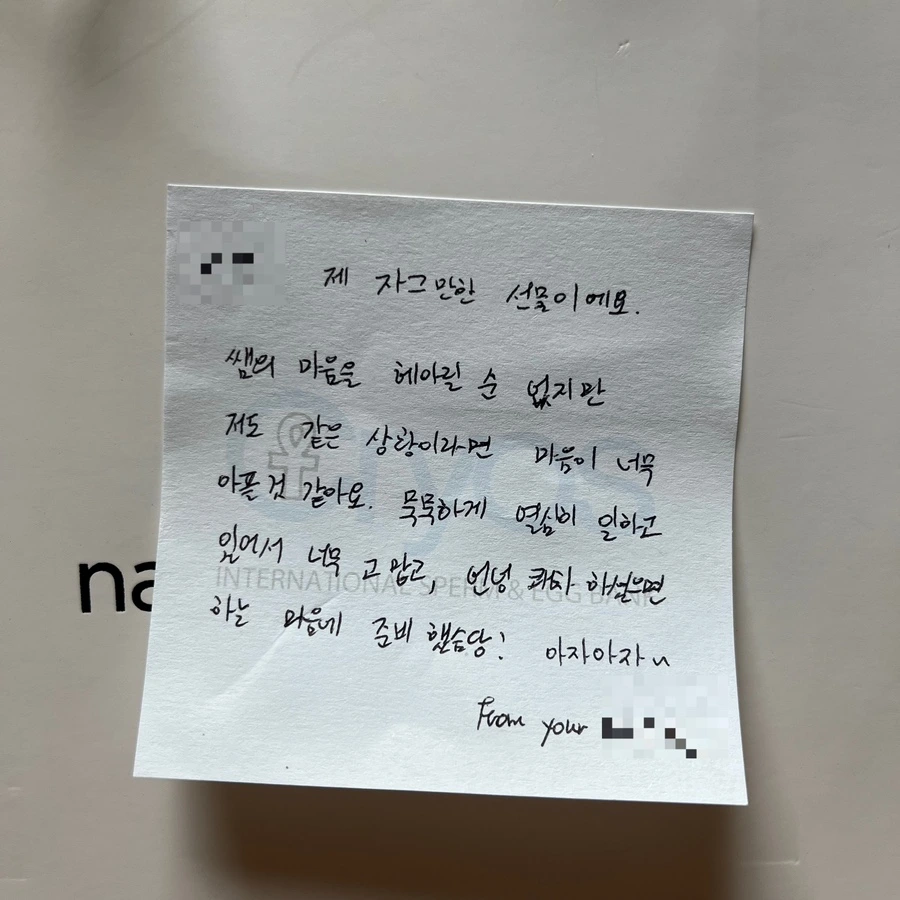 제 자그만한 선물이에요.
쌤의 마음을 헤아릴 순 없지만
저도 같은 상황이라면 마음이 너무
아플 것 같아요. 묵묵하게 열심히 일하고
있어서 너무 고맙고, 언넝 쾌차 하셨으면
하는 마음에 준비 했슴당! 아자아자~
From your
Cryos
INTERNATIONAL SPERM & EGG BANK
na